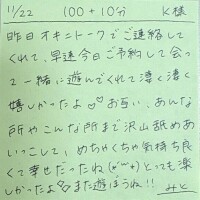 11/22 100+10分 K様
昨日オキニトークでご連絡し
てくれて、早速今日ご予約して会っ
て一緒に遊んでくれて凄く凄く
嬉しかったよ♡♡お互い、あんな
所やこんな所まで沢山舐めあ
いっこして、めちゃくちゃ気持ち良
くて幸せだったね(*´꒳`*)とっても楽
しかったよ♪また遊ぼうね!!
みと